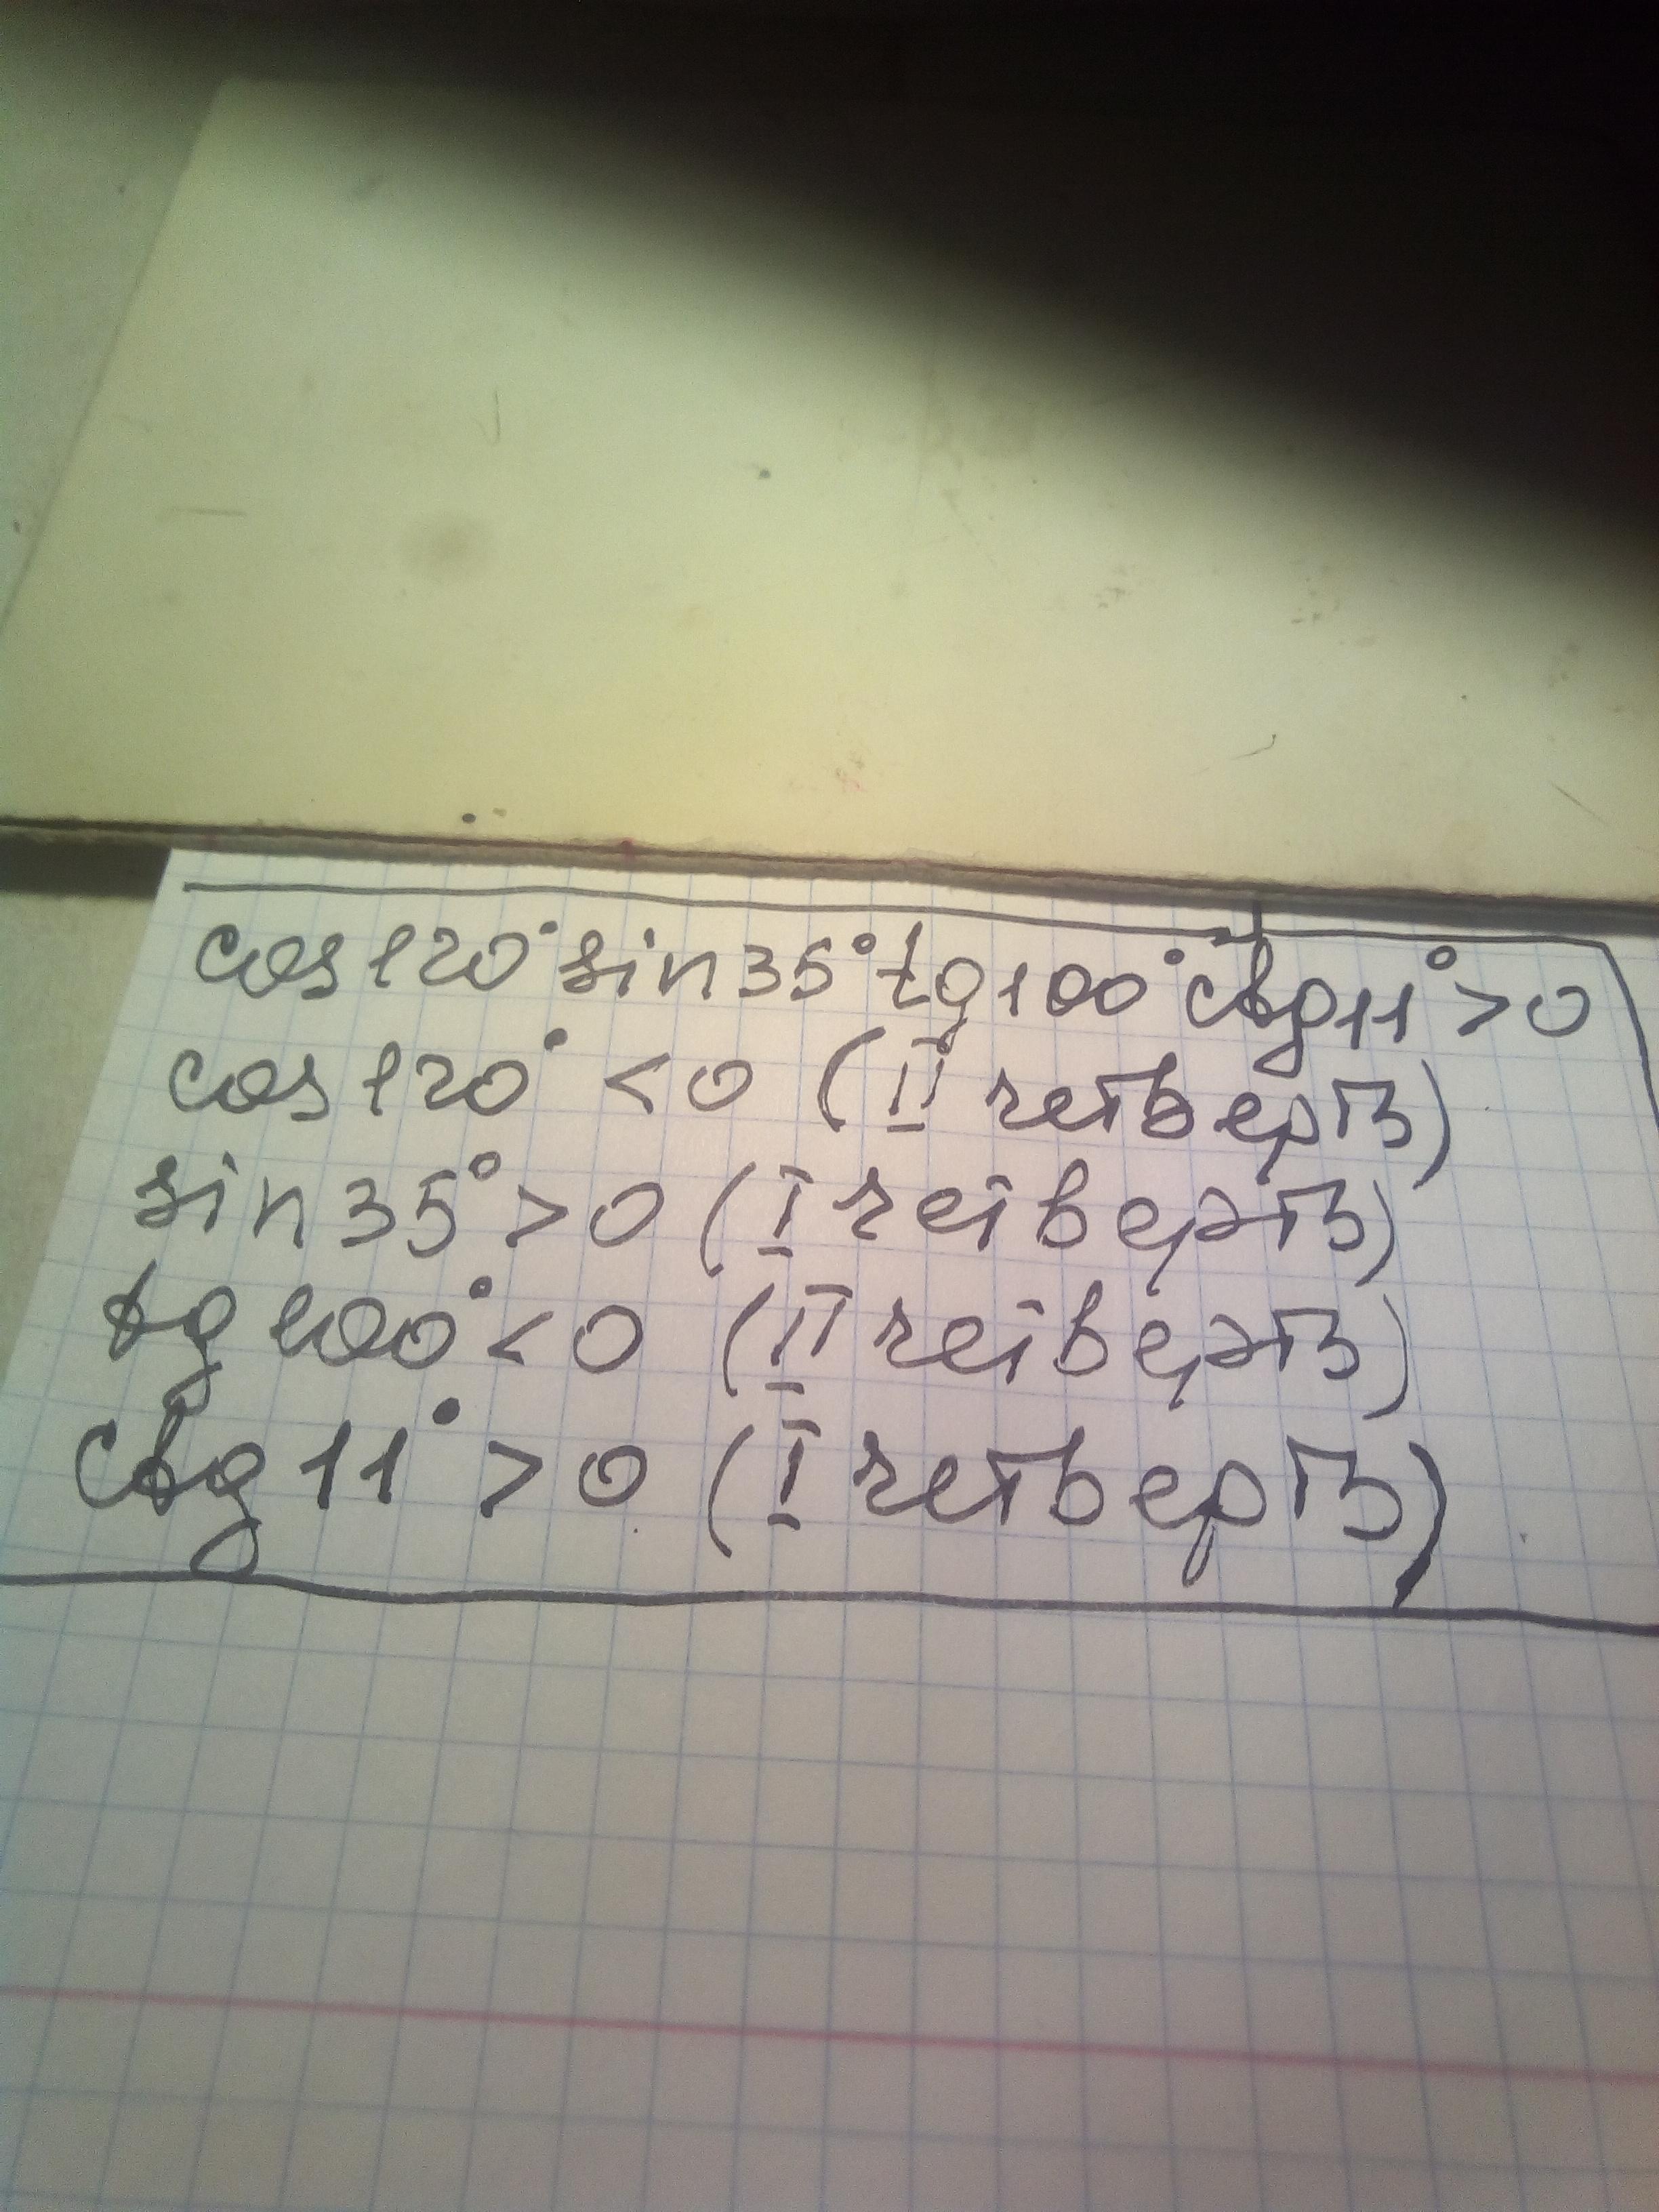 cos120°sin35°tg100°ctg11°>0
cos120° <0 (II четверть)
sin35°>0 (I четверть)
tg100°<0 (II четверть)
ctg11° >0 (I четверть)